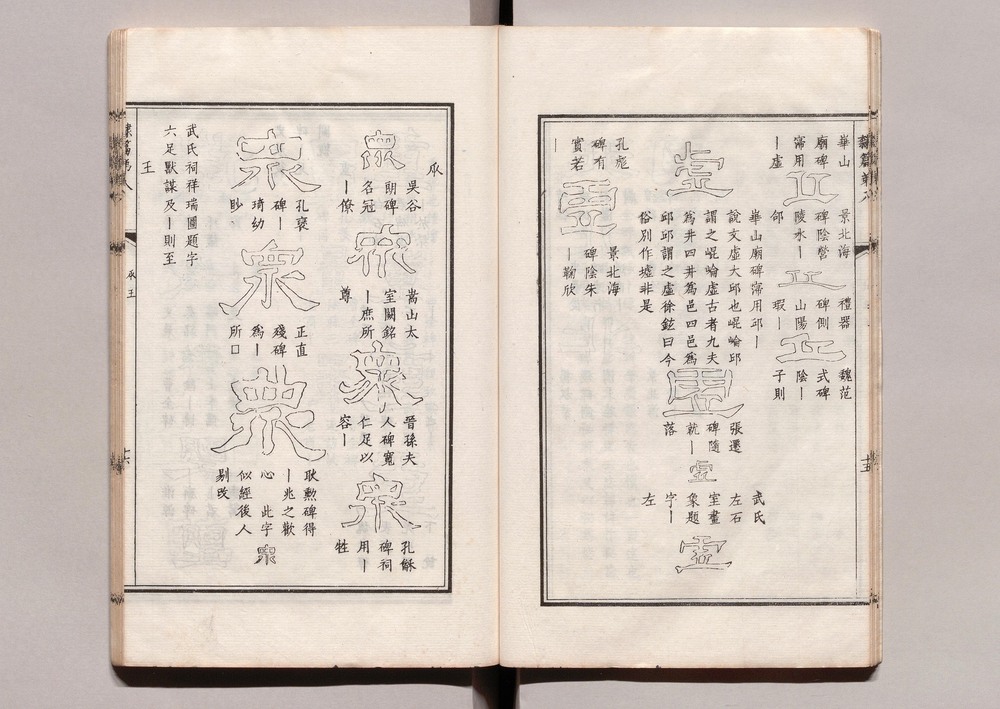 隸篇第八
十五
丘
華山
廟碑
寖用
丨虛
丘
景北海
碑陰營
陵水丨
郃
丘
禮器
碑側
山陽
瑕丨
丘
魏范
式碑
陰丨
子則
虛
華山廟碑寖用邱丨
說文虛大邱也崐崘邱
謂之崐崘虛古者九夫
爲井四井爲邑四邑爲
邱邱謂之虛徐鉉曰今
俗別作墟非是
虛
張遷
碑隨
就丨
落
虛
武氏
左石
室畫
象題
字丨
左
虛
孔彪
碑有
實若
丨
虛
景北海
碑陰朱
丨鞠欣
㐺
眾
吳谷
朗碑
名冠
丨僚
眾
嵩山太
室闕銘
丨庶所
尊
眾
晉孫夫
人碑寬
仁足以
容丨
眾
孔龢
碑祠
用丨
牲
眾
孔褒
碑丨
琦幼
眇
眾
正直
殘碑
爲丨
所□
眾
耿勲碑得
丨兆之歡
心 此字
似經後人
剔改
眾
武氏祠祥瑞圖題字
六足獸謀及丨則至
王
隸篇第八
㐺王
十六